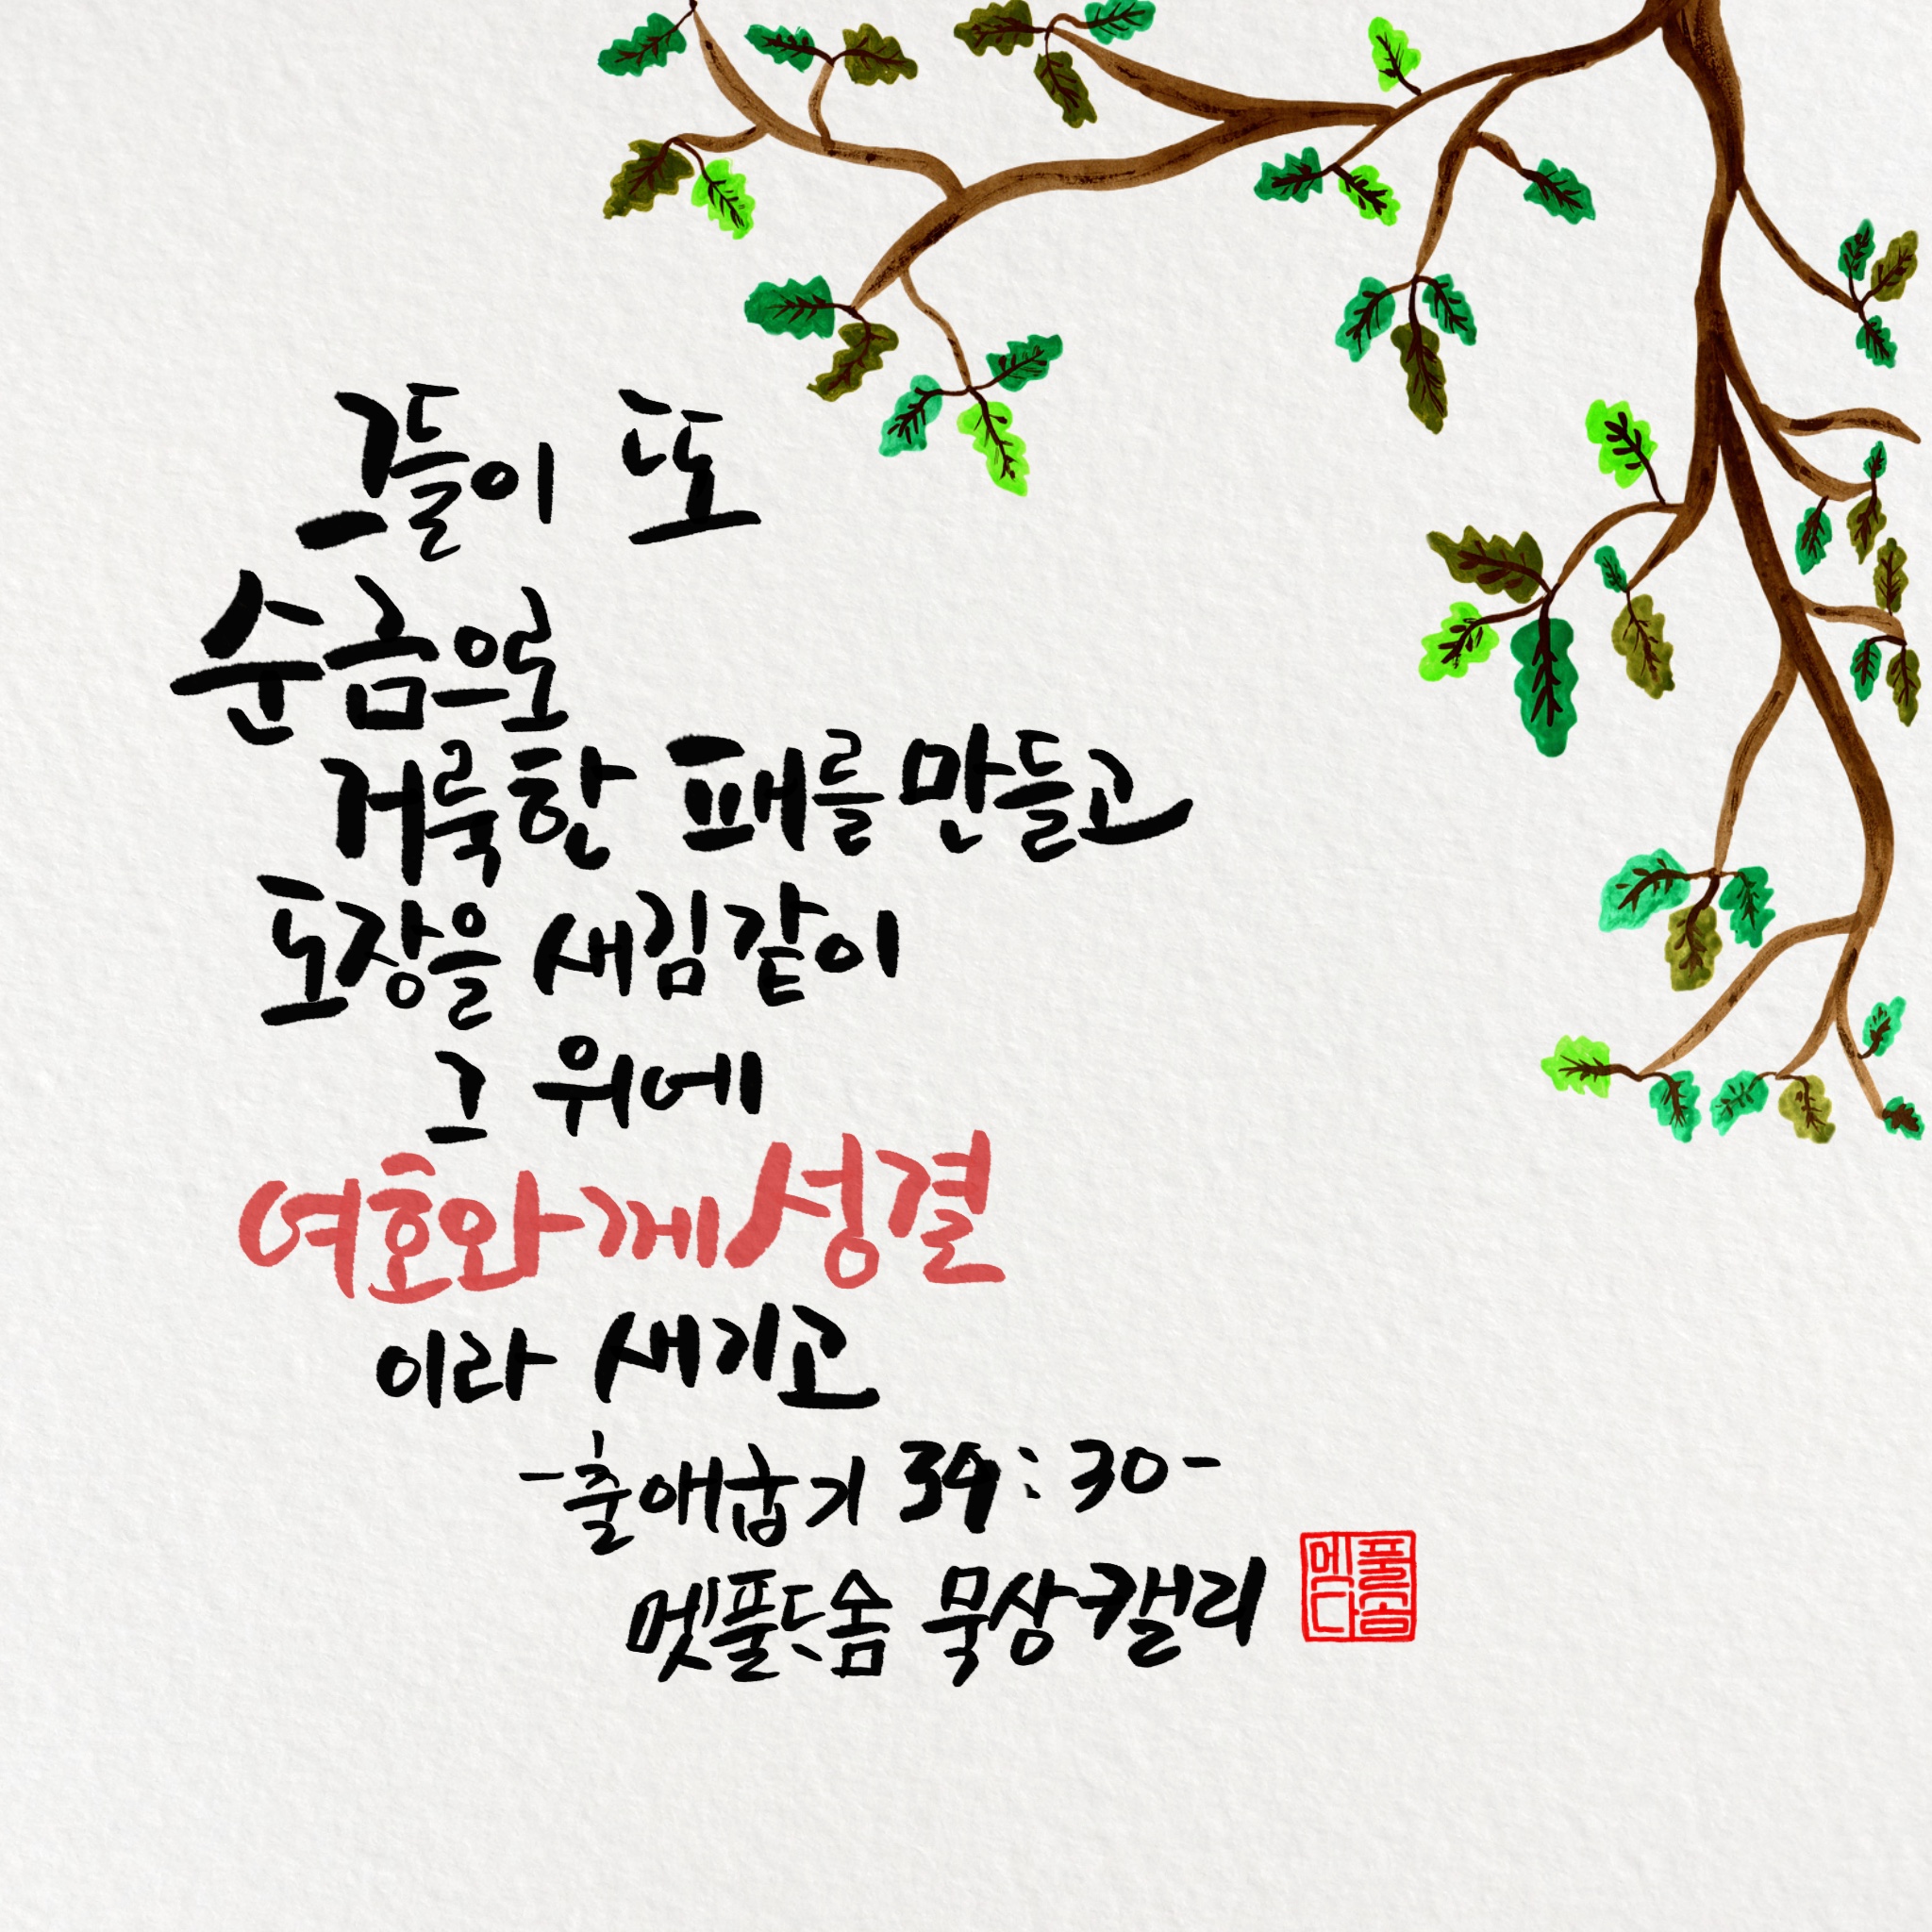 그들이 또
순금으로
거룩한 패를 만들고
도장을 새김같이
그 위에
여호와께 성결
이라 새기고
-출애굽기 39:30-
묵상캘리